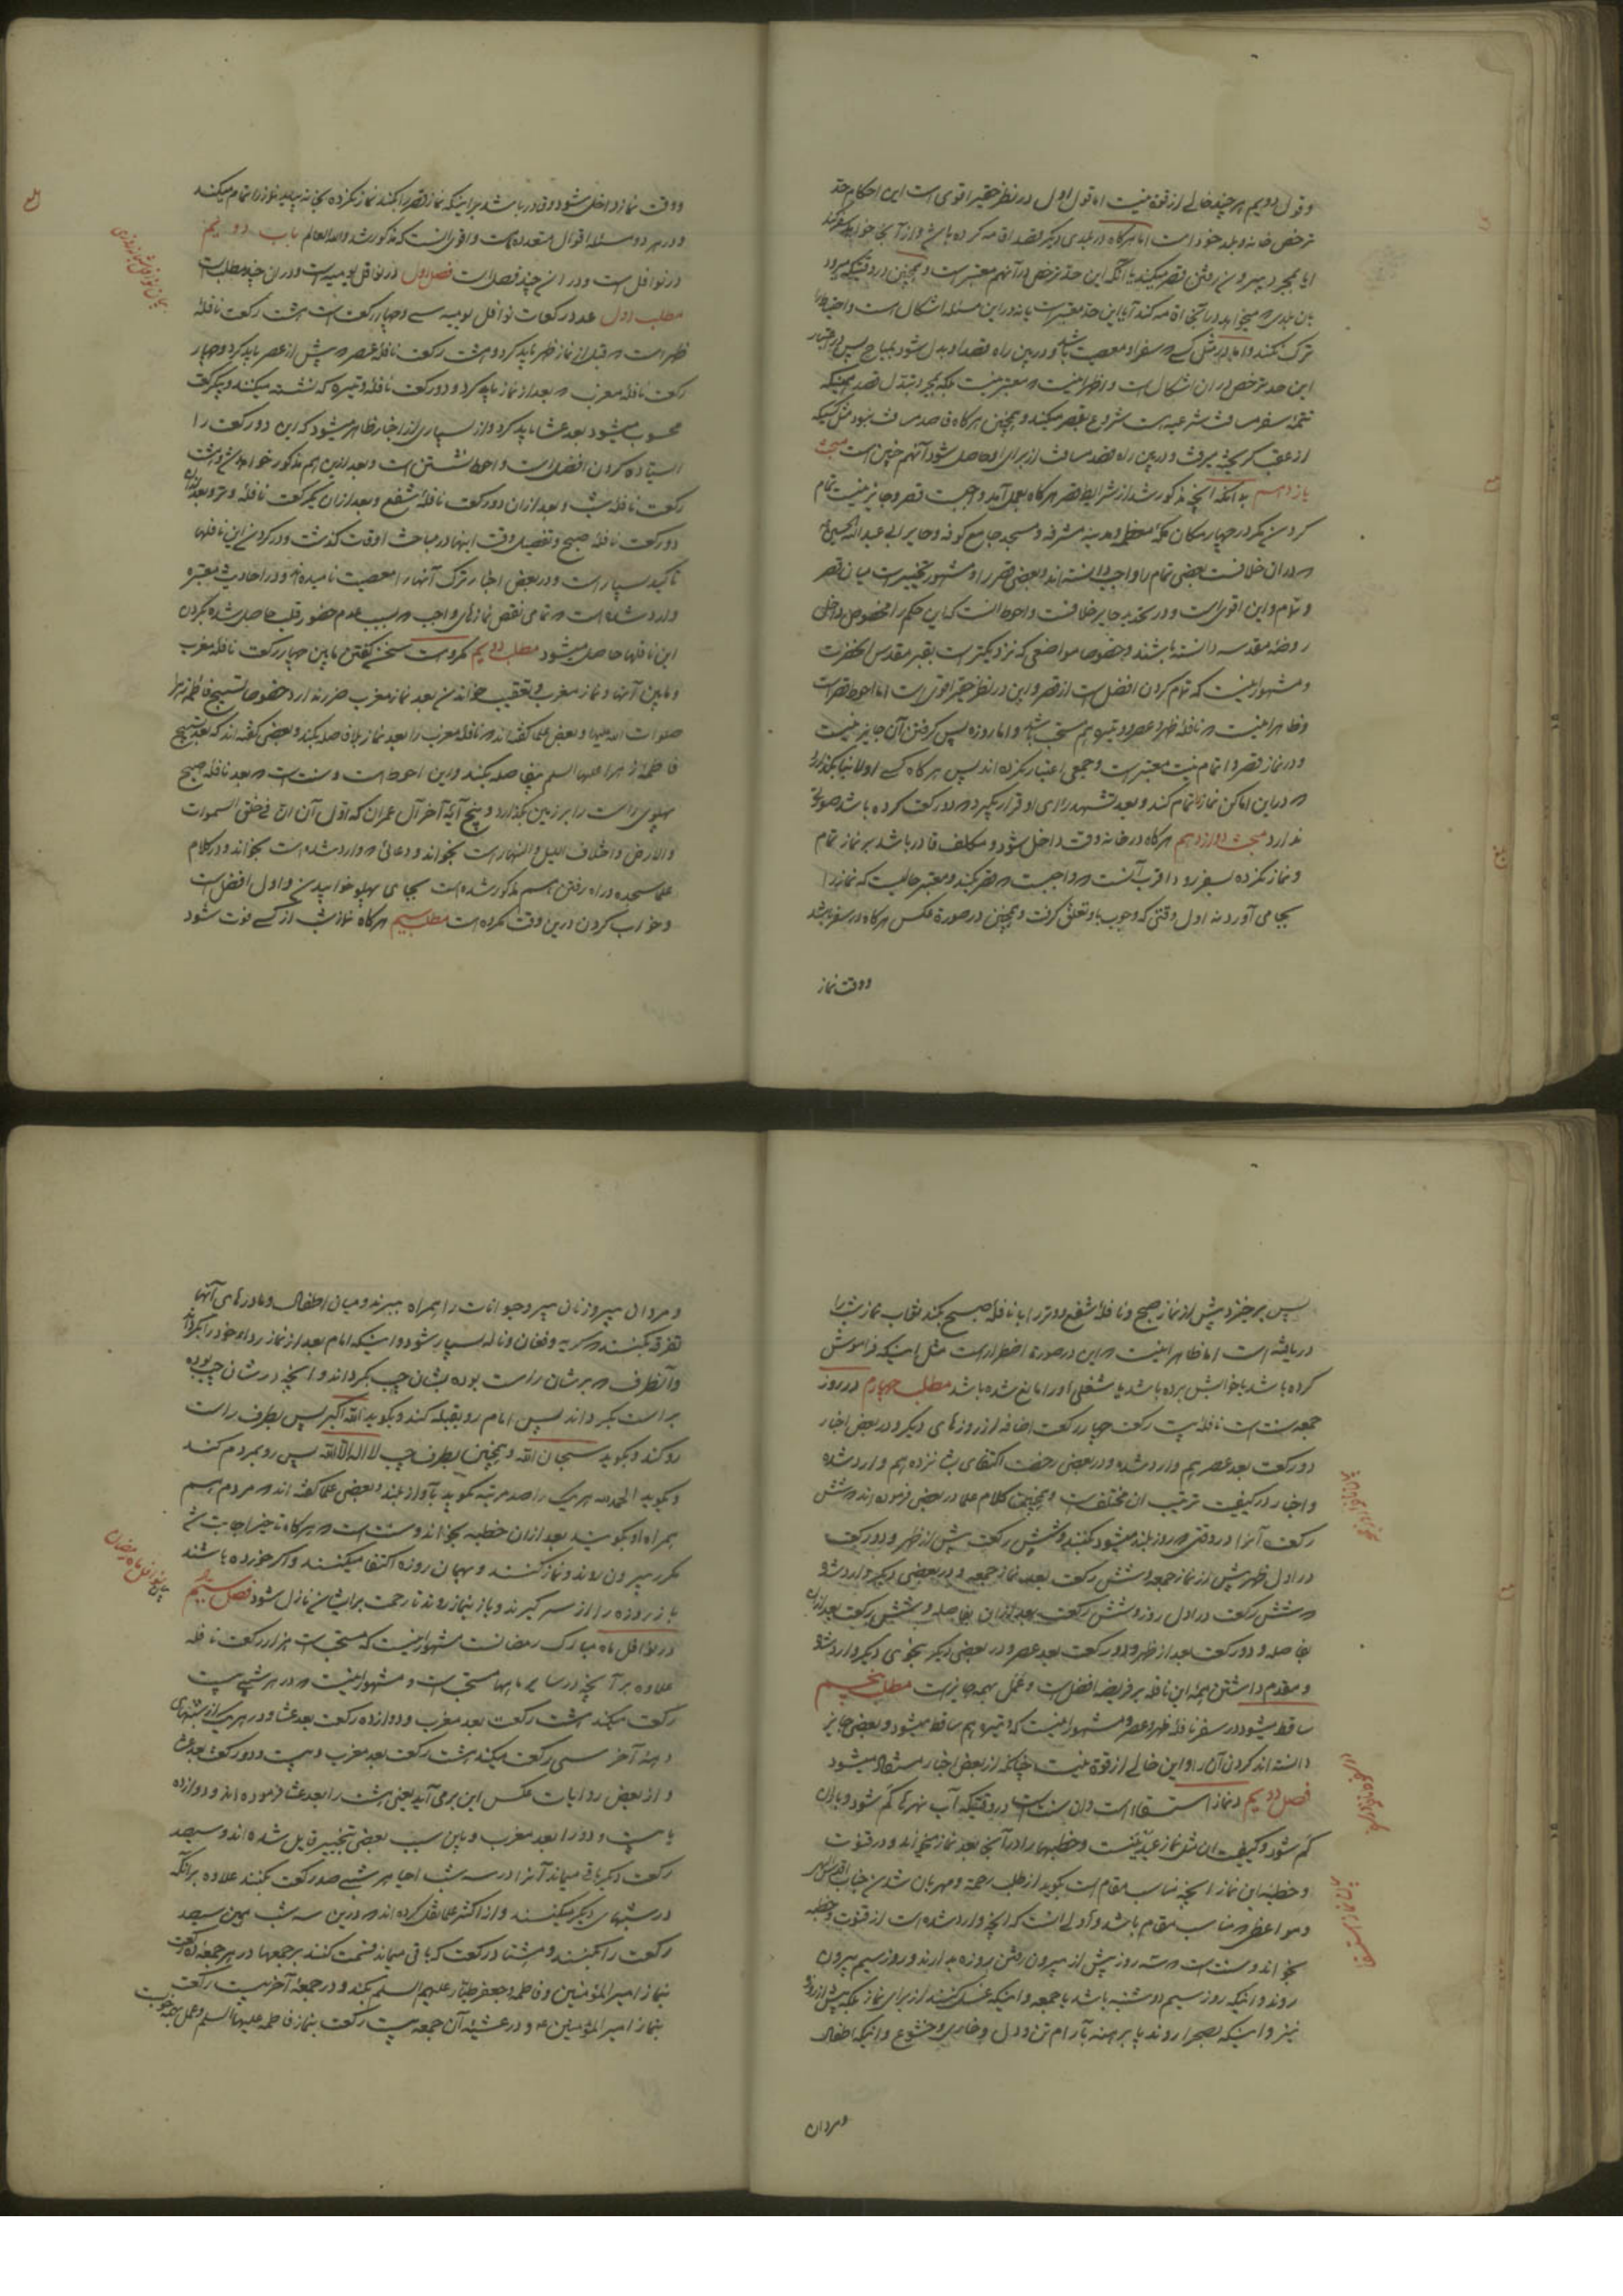 و قول دویم هر چند خالی از قوة نیست اما قول اول در نظر حقیر اقوی است این احکام حد
ترخص خانه و بلد خود است اما هرگاه در بلدی دیگر قصد اقامه کرده باشد و از آنجا خواهد سفر کند
آیا بمجرد بیرون رفتن قصر میکند یا آنکه این حد ترخص در آنهم معتبر است و همچنین در وقتیکه میرود
بان بلدی که میخواهد در آنجا اقامه کند آیا این حد معتبر است یا نه در این مسئله اشکال است و احتیاط را
ترک نکنند و اما در مثل کسی که سفر او معصیت باشد و در بین راه قصد او بدل شود بمباح پس در اعتبار
این حد ترخص در ان اشکال است و اظهر اینست که معتبر نیست بلکه بمجرد تبدل قصد همینکه
تتمه سفر مسافت شرعیه است شروع بقصر میکند و همچنین هرگاه قاصد مسافت نبود مثل کسیکه
از عقب گریخته میرفت و در بین راه قصد مسافت از برای او حاصل شود آنهم چنین است مبحث
یازدهم بدانکه آنچه مذکور شد از شرایط قصر هرگاه بعمل آمد واجبست قصر و جایز نیست تمام
کردن مگر در چهار مکان مکه معظمه و مدینه مشرفه و مسجد جامع کوفه و حایر ابی عبدالله الحسین
که در ان خلافست بعضی تمام را واجب دانسته اند و بعضی قصر را و مشهور تخییر است میان قصر
و تمام و این اقوی است و در تحدید حایر خلافست و احوط انست که این حکم را مخصوص داخل
روضه مقدسه دانسته باشند و خصوصا مواضعی که نزدیکتر است بقبر مقدس آنحضرت
و مشهور اینست که تمام کردن افضل است از قصر و این در نظر حقیر اقوی است اما احوط قصر است
و ظاهر اینست که نافله ظهر و عصر و وتیره هم مستحب باشد و اما روزه پس گرفتن آن جایز نیست
و در نماز قصر و اتمام نیت معتبر است و جمعی اعتبار نکرده اند پس هرگاه کسی اولا بنا بگذارد
که در این اماکن نماز را تمام کند و بعد تشهد رای او قرار بگیرد که دو رکعت کرده باشد صورتی
ندارد مبحث دوازدهم هرگاه در خانه وقت داخل شود و مکلف قادر باشد بر نماز تمام
و نماز نکرده بسفر رود اقرب آنست که واجبست که قصر بکند و معتبر حالیست که نماز را
بجا می آورد نه اول وقتی که وجوب باو تعلق گرفت و همچنین در صورة عکس هرگاه در سفر باشد
و وقت نماز
و وقت نماز داخل شود و قادر باشد بر اینکه نماز قصر را بکند نماز نکرده بخانه بیاید نماز را تمام میکند
و در هر دو مسئله اقوال متعدده هست و اقوی انست که مذکور شد والله العالم باب دویم
در نوافل است و در ان چند فصل است فصل اول در نوافل یومیه است و در ان چند مطلب است
مطلب اول عدد رکعات نوافل یومیه سی و چهار رکعت است هشت رکعت نافله
ظهر است که قبل از نماز ظهر باید کرد و هشت رکعت نافله عصر که پیش از عصر باید کرد و چهار
رکعت نافله مغرب که بعد از نماز باید کرد و دو رکعت نافله وتیره که نشسته میکنند و یکرکعت
محسوب میشود بعد عشا باید کرد و از بسیاری از اخبار ظاهر میشود که این دو رکعت را
ایستاده کردن افضل است و احوط نشستن است و بعد ازین هم مذکور خواهد شد و هشت
رکعت نافله شب و بعد از ان دو رکعت نافله شفع و بعد از ان یکرکعت نافله وتر و بعد از ان
دو رکعت نافله صبح و تفصیل وقت اینها در مباحث اوقات گذشت و در کردن این نافلها
تاکید بسیار است و در بعض اخبار ترک آنها را معصیت نامیده اند و در احادیث معتبره
وارد شده است که تمامی نقص نمازهای واجب که بسبب عدم حضور قلب حاصل شده بکردن
این نافلها حاصل میشود مطلب دویم مکروهست سخن گفتن مابین چهار رکعت نافله مغرب
و مابین آنها و نماز مغرب و تعقیب خواندن بعد نماز مغرب ضرر ندارد خصوصا تسبیح فاطمه زهرا
صلوات الله علیها و بعض علما گفته اند که نافله مغرب را بعد نماز بلافاصله بکند و بعضی گفته اند که بعد تسبیح
فاطمه زهرا علیها السلام بیفاصله بکند و این احوط است و سنت است که بعد نافله صبح
پهلوی راست را بر زمین بگذارد و پنج آیه آخر آل عمران که اول آن ان فی خلق السموات
والارض واختلاف اللیل والنهار است بخواند و دعائی که وارد شده است بخواند و در کلام
علما سجده و راه رفتن هم مذکور شده است بجای پهلو خوابیدن و اول افضل است
و خواب کردن درین وقت مکروه است مطلب سیم هرگاه نماز شب از کسی فوت شود
پس برخیزد پیش از نماز صبح و نافله شفع و وتر را با نافله صبح بکند ثواب نماز شب را
دریافته است اما ظاهر اینست که این در صورة اضطرار است مثل اینکه فراموش
کرده باشد یا خوابش برده باشد یا شغلی او را مانع شده باشد مطلب چهارم در روز
جمعه سنت است نافله بیست رکعت چهار رکعت اضافه از روزهای دیگر و در بعض اخبار
دو رکعت بعد عصر هم وارد شده و در بعضی رخصت اکتفای بشانزده هم وارد شده
و اخبار در کیفیت ترتیب ان مختلف است و همچنین کلام علما در بعض فرموده اند که شش
رکعت آنرا در وقتی که روز بلند میشود کنند و شش رکعت پیش از ظهر و دو رکعت
در اول ظهر پیش از نماز جمعه و شش رکعت بعد نماز جمعه و در بعضی دیگر وارد شده
که شش رکعت در اول روز و شش رکعت بعد از ان بفاصله و شش رکعت بعد از ان
بفاصله و دو رکعت بعد از ظهر و دو رکعت بعد عصر و در بعضی دیگر بنحوی دیگر وارد شده
و مقدم داشتن همه این نافله بر فریضه افضل است و عمل بهمه جایز است مطلب پنجم
ساقط میشود در سفر نافله ظهر و عصر و مشهور اینست که وتیره هم ساقط میشود و بعضی جایز
دانسته اند کردن آن را و این خالی از قوة نیست چنانکه از بعض اخبار مستفاد میشود
فصل دویم در نماز استسقاء است و ان سنت است در وقتیکه آب نهرها کم شود و باران
کم شود و کیفیت ان مثل نماز عیدینست و خطبها را در آنجا بعد نماز میخوانند و در قنوت
و خطبه این نماز آنچه مناسب مقام است بگوید از طلب رحمة و مهربان شدن جناب اقدس الهی
و مواعظی که مناسب مقام باشد و اولی انست که آنچه وارد شده است از قنوت و خطبه
بخواند و سنت است که سه روز پیش از بیرون رفتن روزه بدارند و روز سیم بیرون
روند و اینکه روز سیم دوشنبه باشد یا جمعه و اینکه غسل کنند از برای نماز بلکه پیش از روزه
نیز و اینکه بصحرا روند پا برهنه بآرام تن و دل و خاری و خشوع و اینکه اطفال
و مردان
و مردان پیر و زنان پیر و حیوانات را همراه ببرند و میان اطفال و مادرهای آنها
تفرقه بکنند که گریه و فغان و ناله بسیار شود و اینکه امام بعد از نماز رداء خود را بگرداند
و آنطرف که بر شان راست بوده بشان چپ بگرداند و آنچه در شان چپ بوده
براست بگرداند پس امام رو بقبله کند و بگوید الله اکبر پس بطرف راست
رو کند و بگوید سبحان الله و همچنین بطرف چپ لا اله الا الله پس رو بمردم کند
و بگوید الحمد لله هر یک را صد مرتبه بگوید بآواز بلند و بعضی علما گفته اند که مردم هم
همراه او بگویند بعد از ان خطبه بخواند و سنت است که هرگاه تاخیر اجابت شد
مکرر بیرون روند و نماز کنند و بهمان روزه اکتفا میکنند و اگر خورده باشند
باز روزه را از سر گیرند و باز بنماز روند تا رحمت بر ایشان نازل شود فصل سیم
در نوافل ماه مبارک رمضانست مشهور اینست که مستحبست هزار رکعت نافله
علاوه بر آنچه در سایر ماهها مستحب است و مشهور اینست که در هر شبی بیست
رکعت میکند هشت رکعت بعد مغرب و دوازده رکعت بعد عشا و در هر یک از شبهای
دهه آخر سی رکعت میکند هشت رکعت بعد مغرب و بیست و دو رکعت بعد عشا
و از بعض روایات عکس این برمی آید یعنی هشت را بعد عشا فرموده اند و دوازده
یا بیست و دو را بعد مغرب و باین سبب بعضی بتخییر قایل شده اند و سیصد
رکعت دیگر باقی میماند آنرا در سه شب احیا هر شبی صد رکعت بکنند علاوه بر آنکه
در شبهای دیگر میکنند و از اکثر علما نقل کرده اند که درین سه شب همین سیصد
رکعت را بکنند و هشتاد رکعت که باقی میماند قسمت کنند بر جمعها در هر جمعه ده رکعت
بنماز امیر المؤمنین و فاطمه و جعفر طیار علیهم السلام بکند و در جمعه آخر بیست رکعت
بنماز امیر المؤمنین ع و در عشیه آن جمعه بیست رکعت بنماز فاطمه علیها السلام و عمل بهمه خوبست